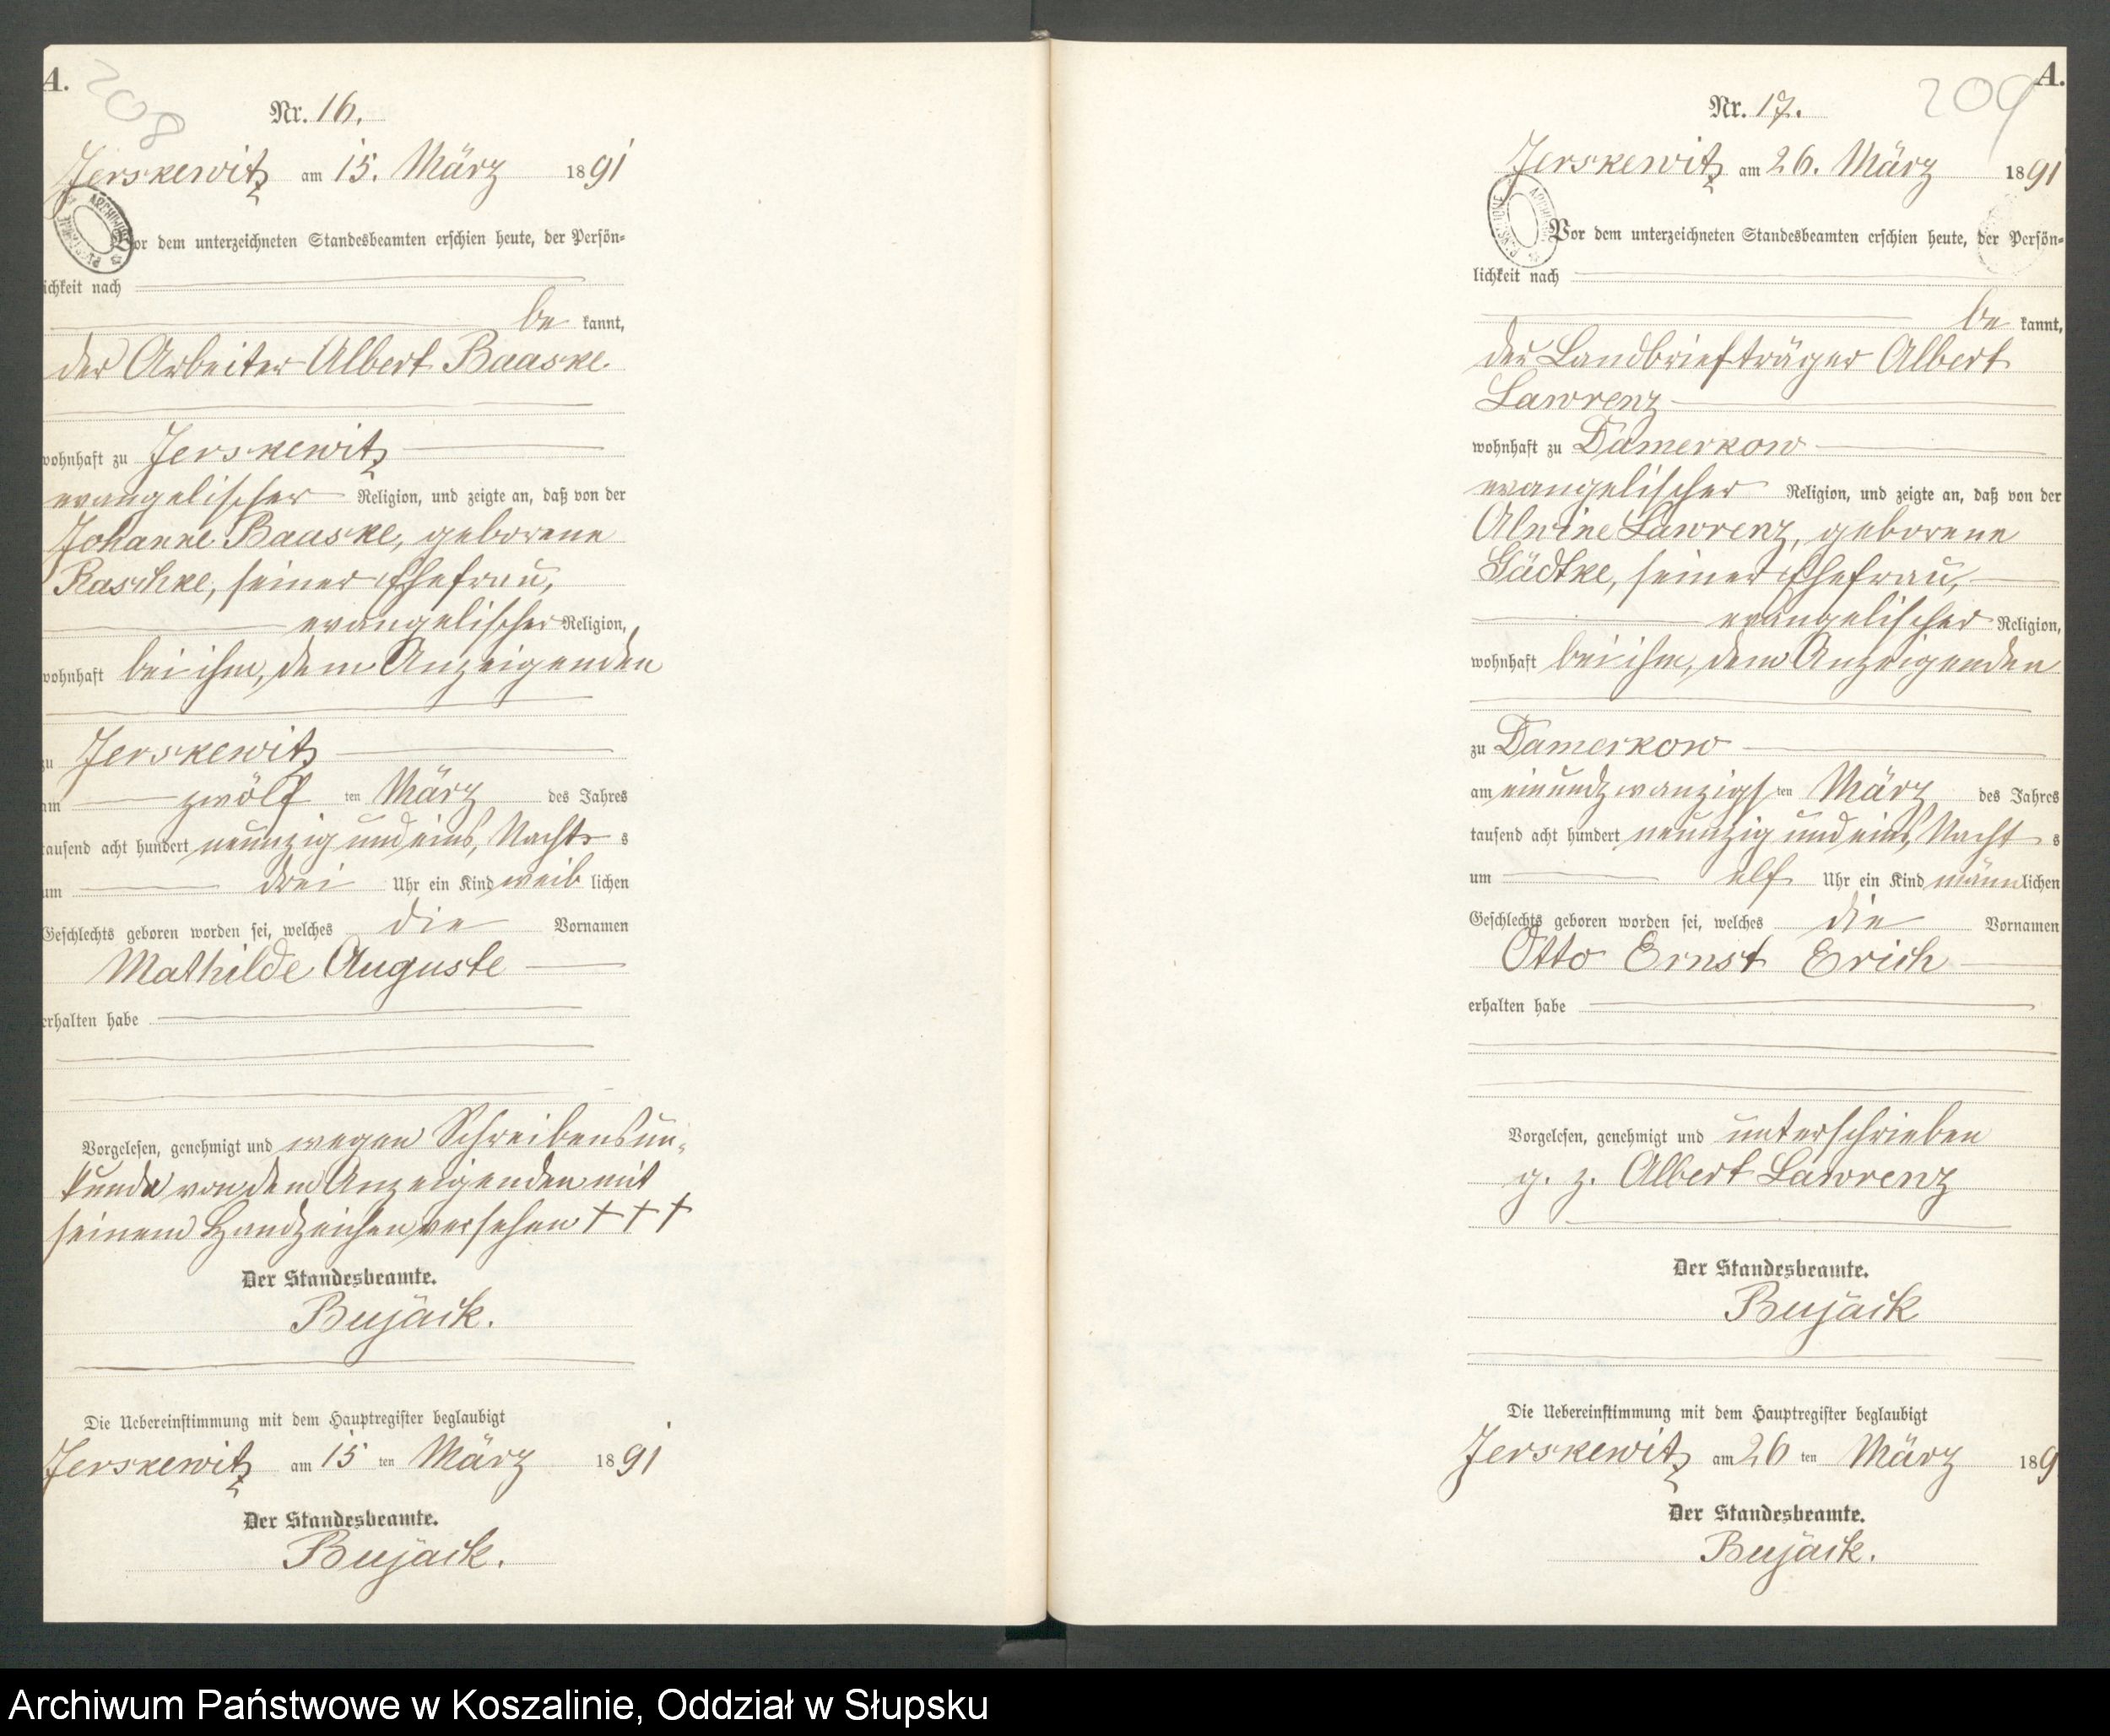 A.
208
Nr. 16.
Jerskewitz am 15. März 1891
Vor dem unterzeichneten Standesbeamten erschien heute, der Persön-
ichkeit nach
be kannt,
der Arbeiter Albert Baaske
wohnhaft zu Jerskewitz
evangelischer Religion, und zeigte an, daß von der
Johanne Baaske, geborene
Raschke, seiner Ehefrau,
evangelischer Religion,
wohnhaft bei ihm, dem Anzeigenden
zu Jerskewitz
am zwölf ten März des Jahres
tausend acht hundert neunzig und eins, Nachts
um drei Uhr ein Kind weib lichen
Geschlechts geboren worden sei, welches die Vornamen
Mathilde Auguste
erhalten habe
Vorgelesen, genehmigt und wegen Schreibensun-
kunde von dem Anzeigenden mit
seinem Handzeichen versehen + + +
Der Standesbeamte.
Bujack.
Die Uebereinstimmung mit dem Hauptregister beglaubigt
Jerskewitz am 15 ten März 1891
Der Standesbeamte.
Bujack.
A.
209
Nr. 17.
Jerskewitz am 26. März 1891
Vor dem unterzeichneten Standesbeamten erschien heute, der Persön-
lichkeit nach
be kannt,
der Landbriefträger Albert
Lawrenz
wohnhaft zu Damerkow
evangelischer Religion, und zeigte an, daß von der
Alwine Lawrenz, geborene
Gädtke, seiner Ehefrau,
evangelischer Religion,
wohnhaft bei ihm, dem Anzeigenden
zu Damerkow
am einundzwanzigsten März des Jahres
tausend acht hundert neunzig und eins, Nacht s
um elf Uhr ein Kind männlichen
Geschlechts geboren worden sei, welches die Vornamen
Otto Ernst Erich
erhalten habe
Vorgelesen, genehmigt und unterschrieben
g. z. Albert Lawrenz
Der Standesbeamte.
Bujack
Die Uebereinstimmung mit dem Hauptregister beglaubigt
Jerskewitz am 26 ten März 189
Der Standesbeamte.
Bujack.
Archiwum Państwowe w Koszalinie, Oddział w Słupsku